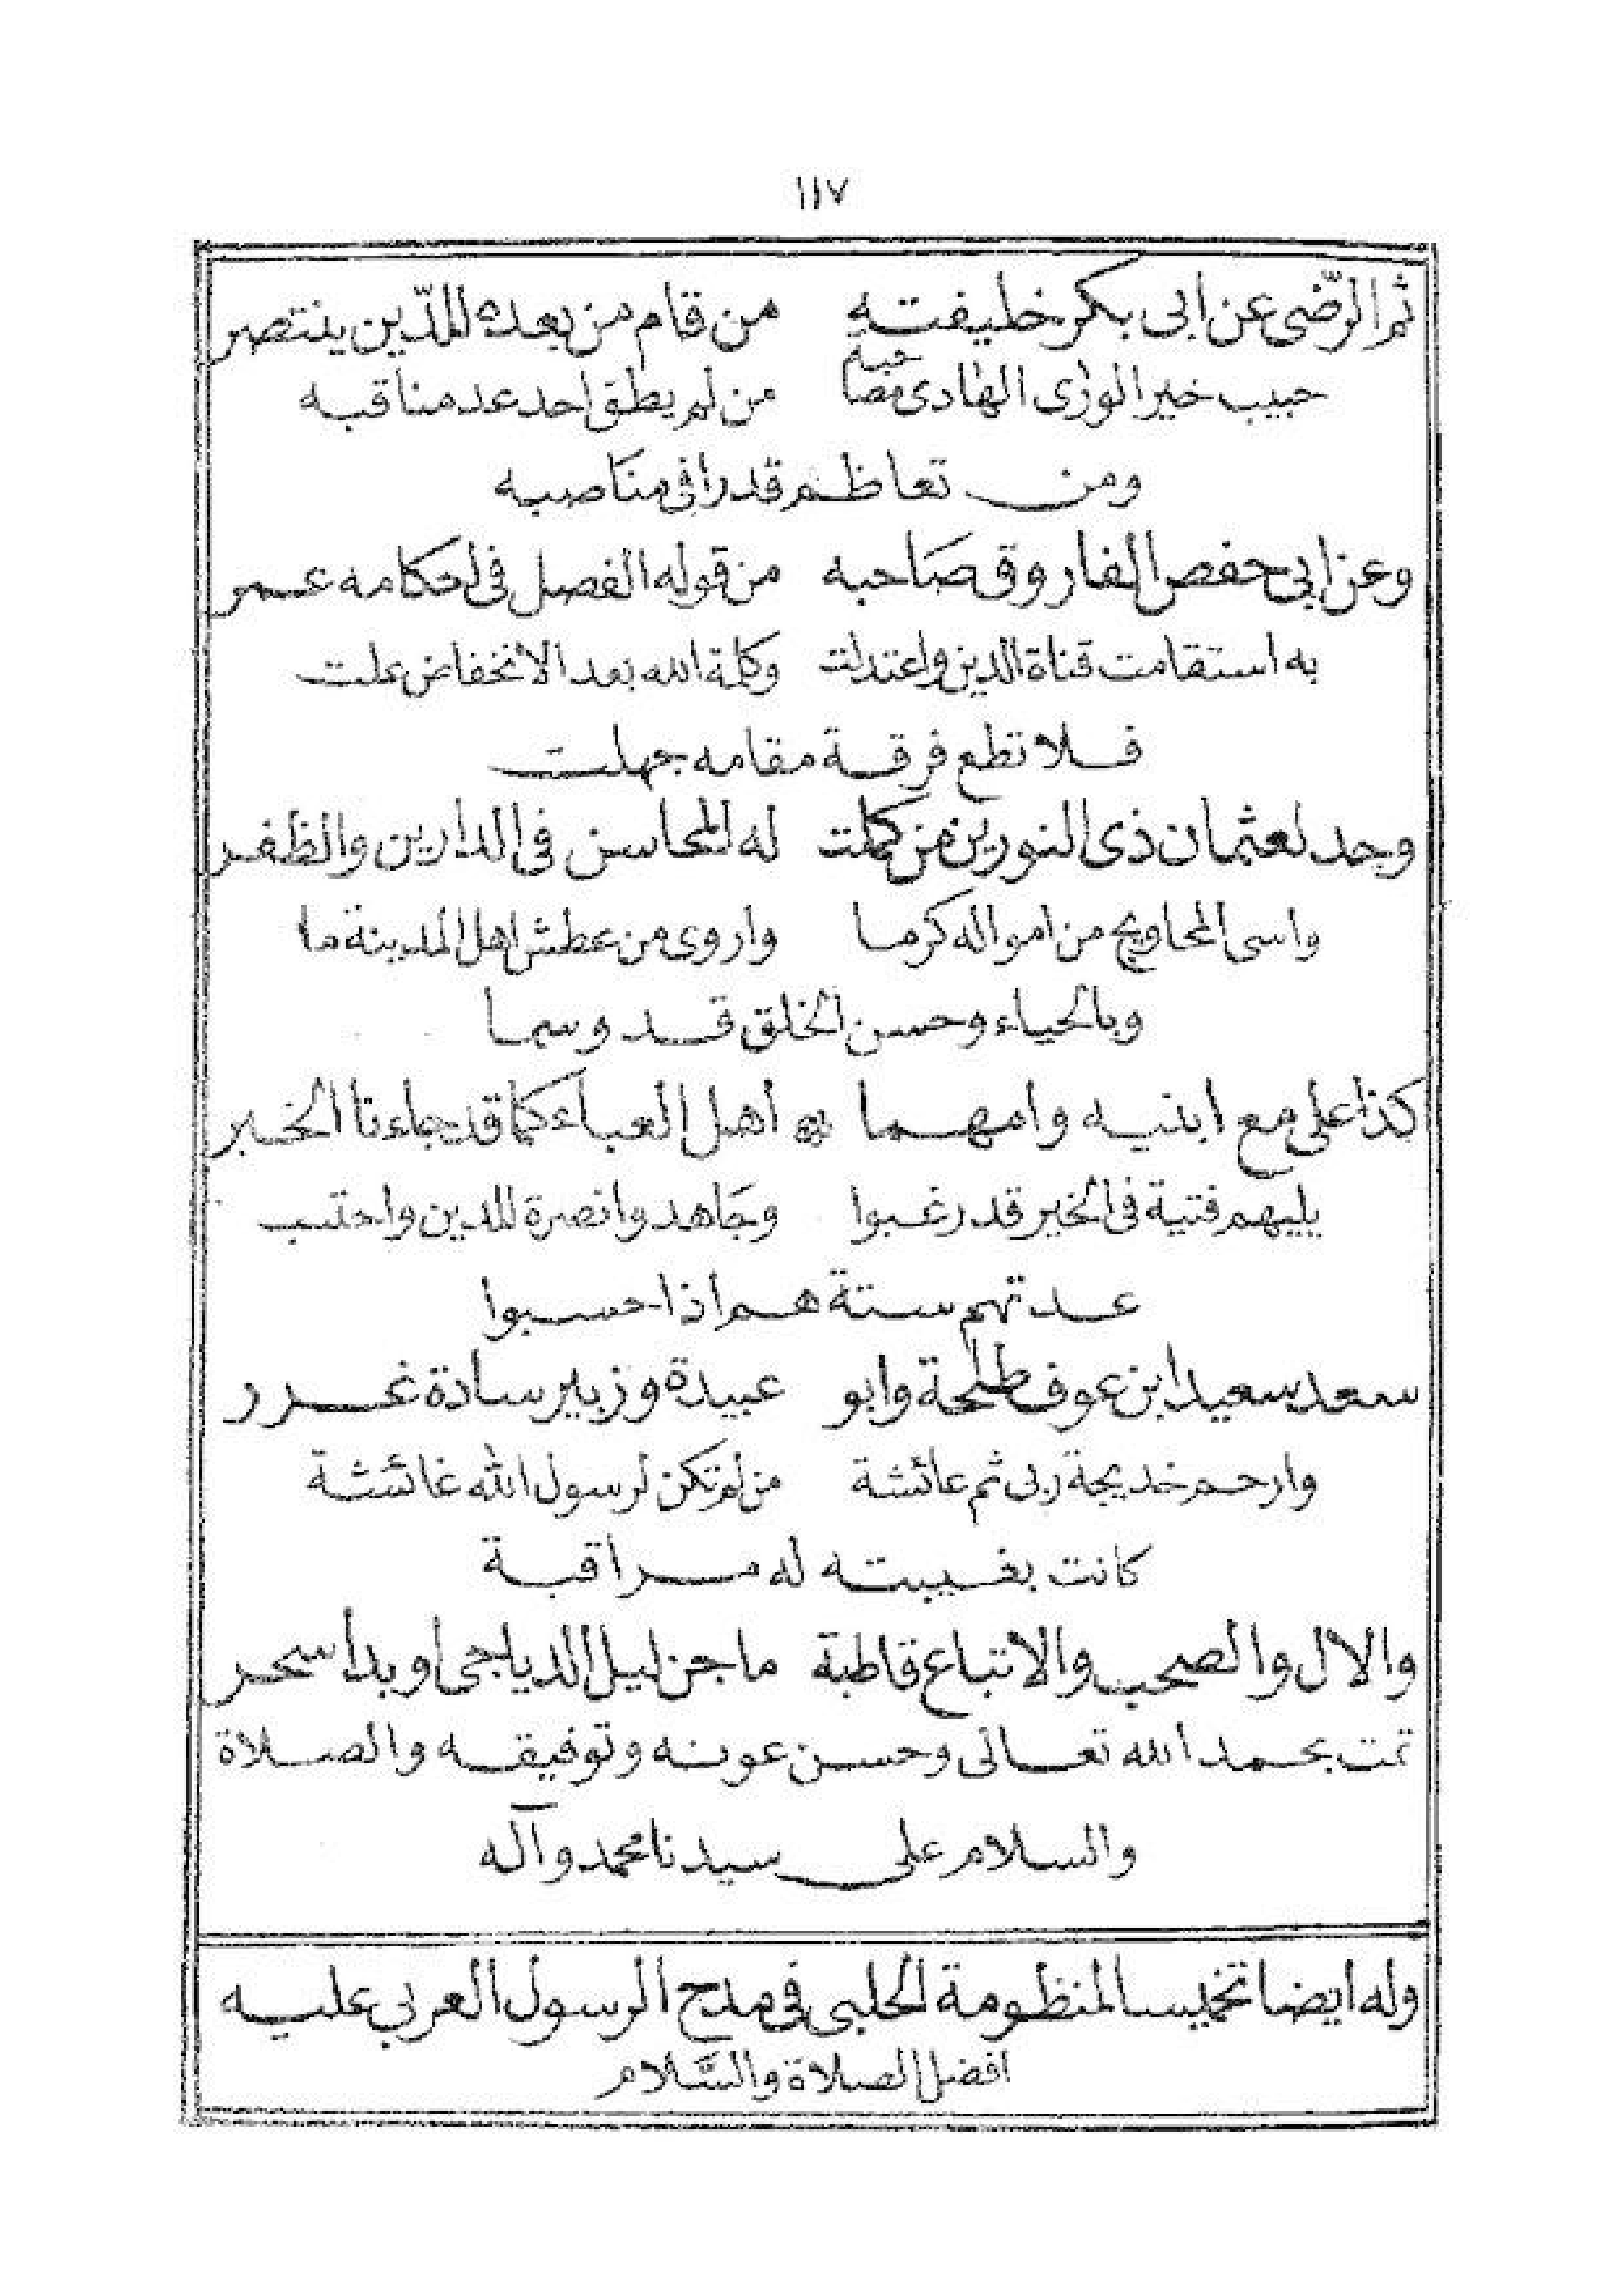 ١١٧
ثم الرّضى عن ابى بكر خليفته من قام من بعده للدّين ينتصر
حبيب خير الورى الهادى مصاحبه من لم يطق احد عد مناقبه
ومن تعاظم قدرا فى مناصبه
وعن ابي حفص الفاروق صاحبه من قوله الفصل فى احكامه عمر
به استقامت قناة الدين واعتدلت وكلمة الله بعد الانخفاض علت
فلا تطع فرقة مقامه جهلت
وجد لعثمان ذى النورين من كملت له المحاسن فى الدارين والظفر
واسى المحاويج من امواله كرما واروى من عطش اهل المدينة ما
وبالحياء وحسن الخلق قد وسما
كذا على مع ابنيه وامهما اهل العباء كما قد جاءنا الخبر
يليهم فتية فى الخير قد رغبوا وجاهدوا نصرة للدين واحتسب
عدتهم ستة هم اذا حسبوا
سعد سعيد ابن عوف طلحة وابو عبيدة وزبير سادة غرر
وارحم خديجة ربى ثم عائشة من لم تكن لرسول الله غائشة
كانت بغيبته له مراقبة
والال والصحب والاتباع قاطبة ما جن ليل الدياجى او بدا سحر
تمت بحمد الله تعالى وحسن عونه وتوفيقه والصلاة
والسلام على سيدنا محمد وآله
وله ايضا تخميسا لمنظومة الحلبى فى مدح الرسول العربي عليه
افضل الصلاة والسَّلام